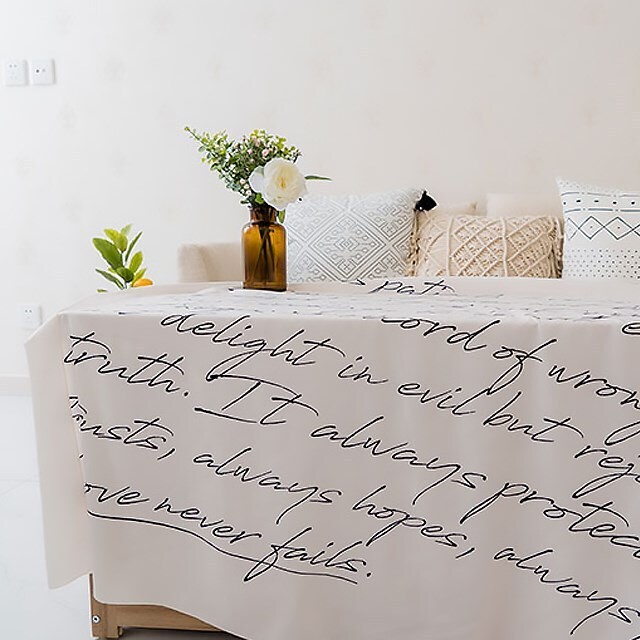 pat
ord of wrong
delight in evil but rej
truth. It always protec
trusts, always hopes, always
ove never fails.